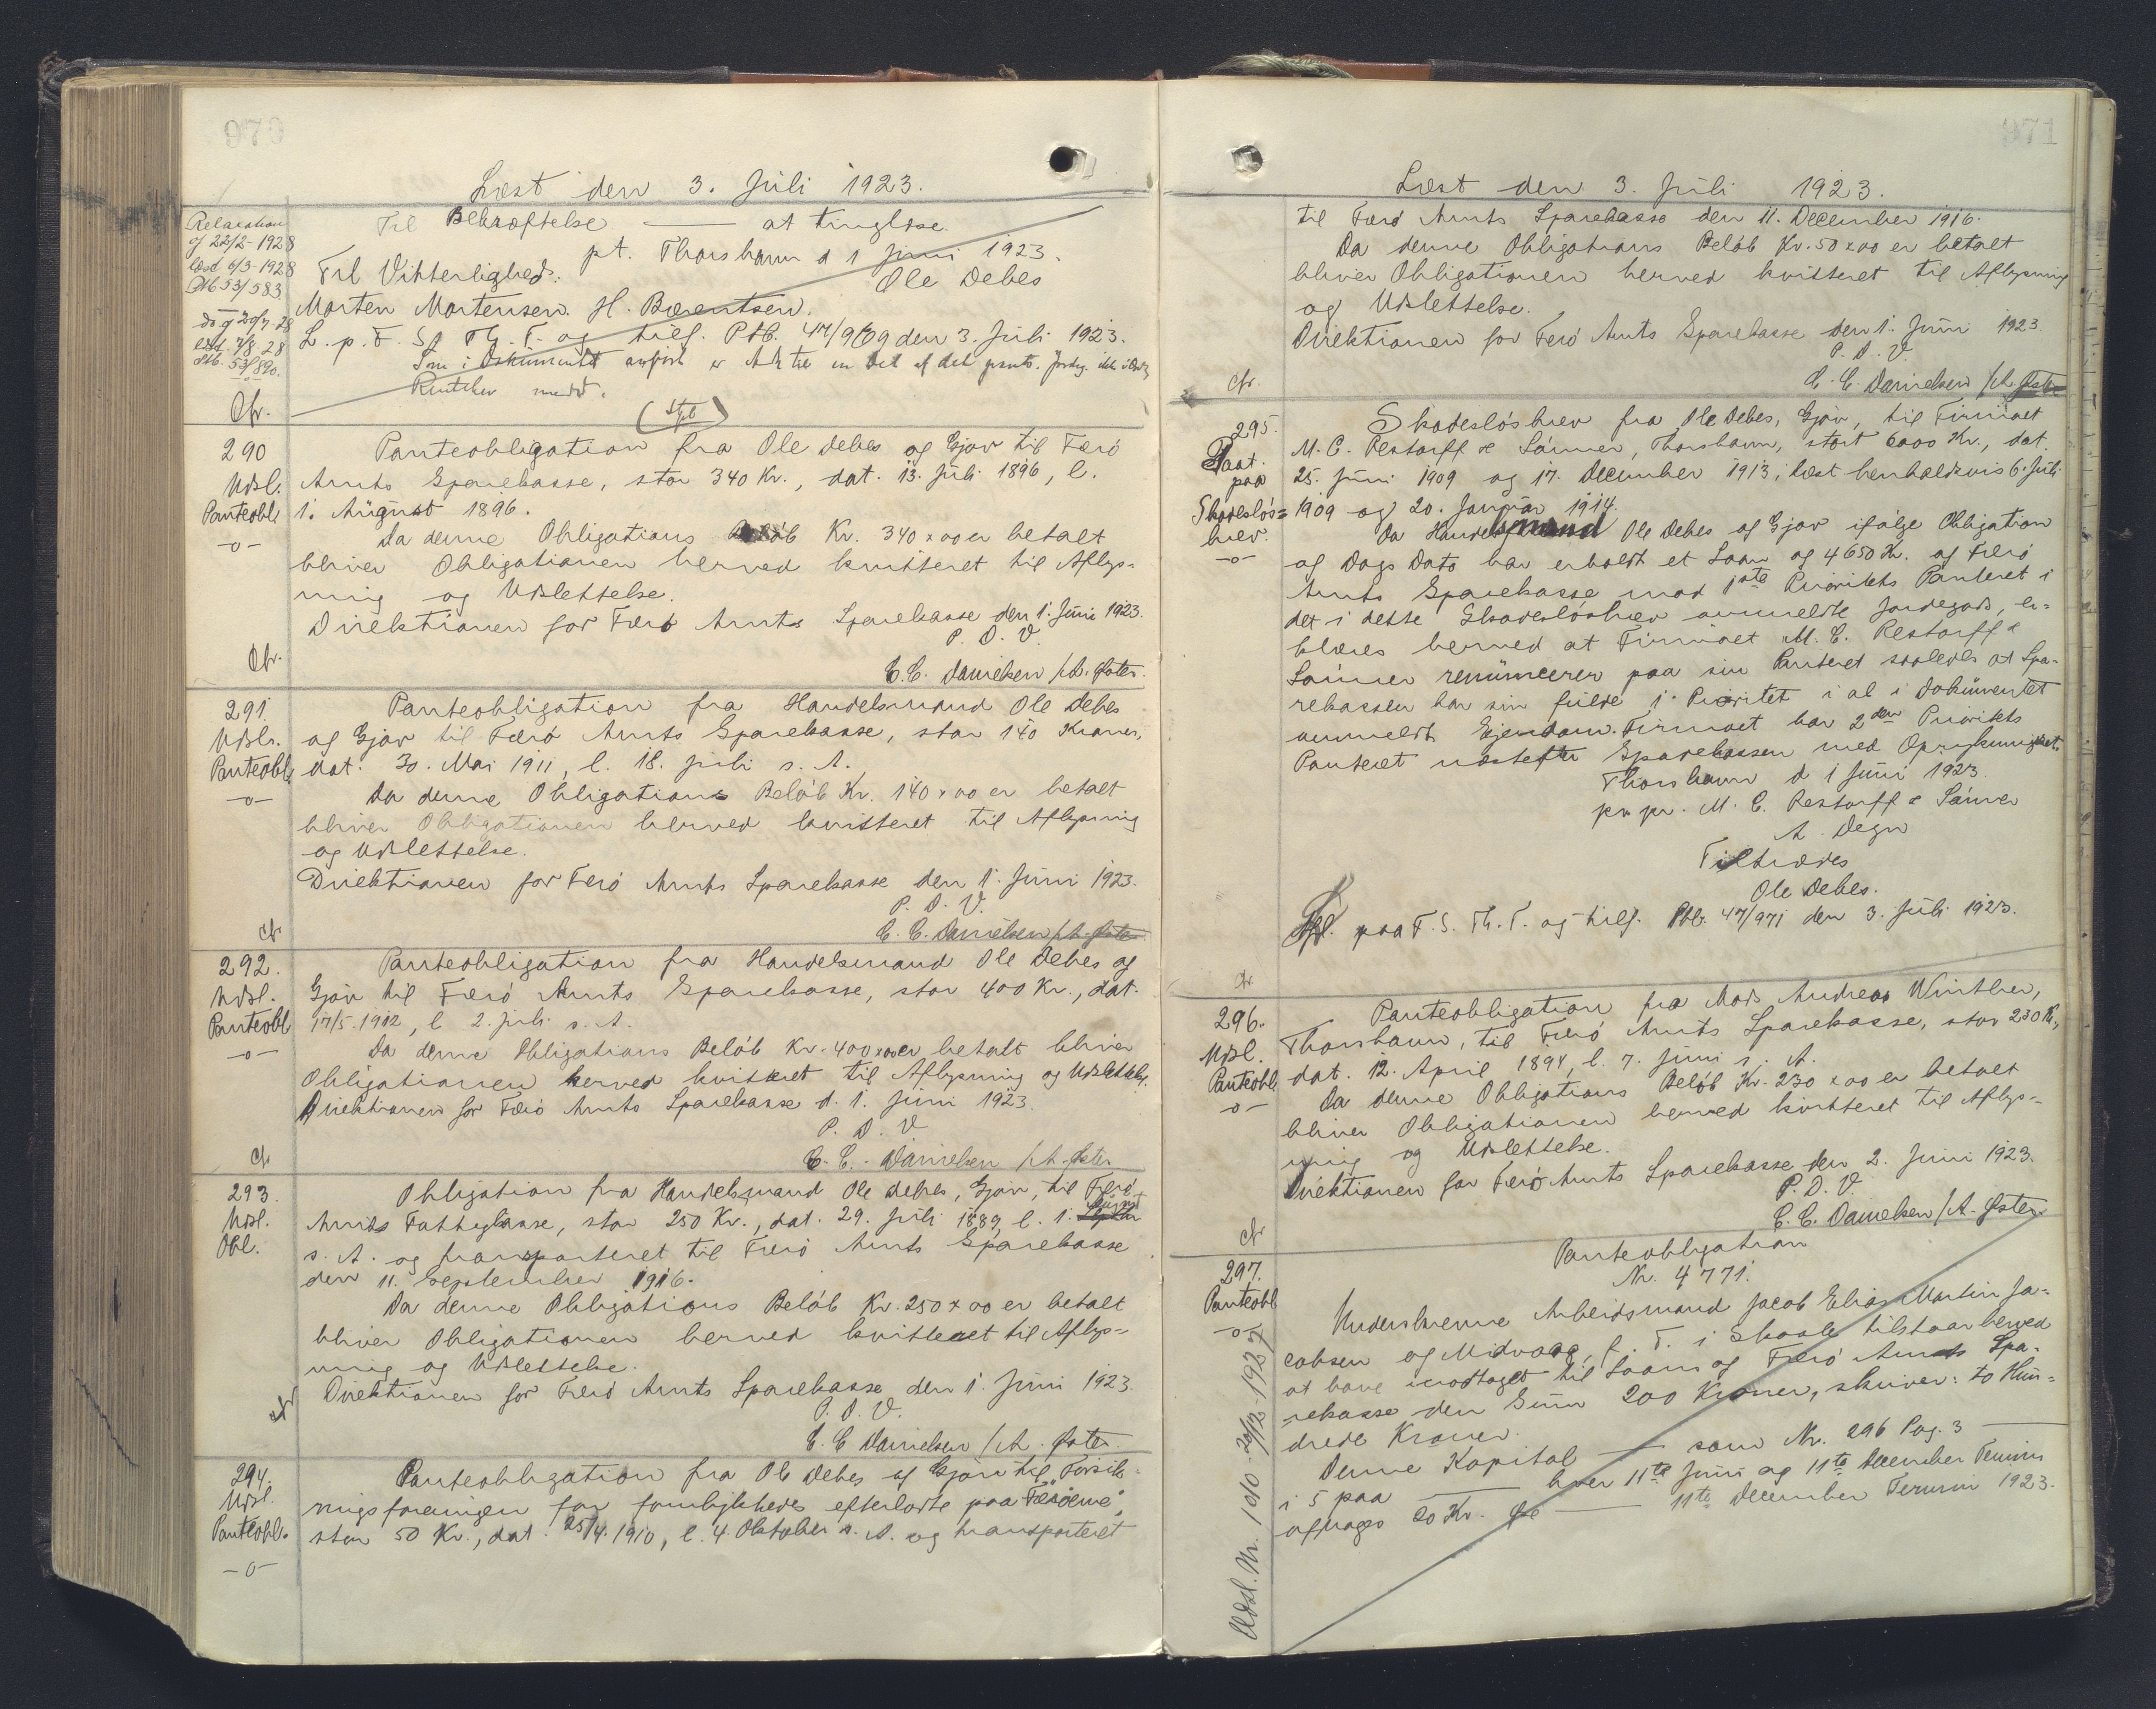 970
Læst den 3. Juli 1923.
Relaxation
af 22/2-1928
læst 6/3-1928
Ptb 53/583
do af 20/7-28
læst 7/8-28
Ptb. 53/820.
-o-
Cfr.
Til Bekræftelse — at tinglæse.
pt. Thorshavn d 1 Juni 1923.
Til Vitterlighed: Ole Debes
Morten Mortensen. H. Bærentsen.
L. p. F. S. Th. T. og tilf. Ptb. 47/969 den 3. Juli 1923.
Som i Dokumentet anført er Adk til en Del af det pants. Jordeg. ikke
Rentekr medd.
(Stpl)
290
Udsl.
Panteobl.
-o-
Cfr.
Panteobligation fra Ole Debes af Gjov til Færö
Amts Sparekasse, stor 340 Kr., dat. 13. Juli 1896, l.
1. August 1896.
Da denne Obligations Beløb Kr. 340 x 00 er betalt
bliver Obligationen herved kvitteret til Aflys-
ning og Udslettelse.
Direktionen for Færö Amts Sparekasse den 1. Juni 1923.
P. D. V.
C. C. Danielsen /A. Øster.
291.
Udsl.
Panteobl.
-o-
Cfr
Panteobligation fra Handelsmand Ole Debes
af Gjov til Færö Amts Sparekasse, stor 140 Kroner,
dat. 30. Mai 1911, l. 18. Juli s. A.
Da denne Obligations Beløb Kr. 140 x 00 er betalt
bliver Obligationen herved kvitteret til Aflysning
og Udslettelse.
Direktionen for Færö Amts Sparekasse den 1. Juni 1923.
P. D. V.
C. C. Danielsen /A. Øster
292.
Udsl.
Panteobl
-o-
Cfr
Panteobligation fra Handelsmand Ole Debes af
Gjov til Færö Amts Sparekasse, stor 400 Kr., dat.
17/5 1912, l. 2. Juli s. A.
Da denne Obligations Beløb Kr. 400 x 00 er betalt bliver
Obligationen herved kvitteret til Aflysning og Udslettelse.
Direktionen for Færö Amts Sparekasse d. 1. Juni 1923.
P. D. V.
C. C. Danielsen /A. Øster
293.
Udsl.
Obl.
Cfr
Obligation fra Handelsmand Ole Debes, Gjov, til Færö
Amts Fattigkasse, stor 250 Kr., dat. 29. Juli 1889, l. 1. August
s. A. og transporteret til Færö Amts Sparekasse
den 11. September 1916.
Da denne Obligations Beløb Kr. 250 x 00 er betalt
bliver Obligationen herved kvitteret til Aflys-
ning og Udslettelse.
Direktionen for Færö Amts Sparekasse den 1. Juni 1923.
P. D. V.
C. C. Danielsen /A. Øster.
294.
Udsl.
Panteobl.
-o-
Panteobligation fra Ole Debes af Gjov til "Forsik-
ringsforeningen for forulykkedes efterladte paa Færöerne",
stor 50 Kr., dat. 25/4 1910, l. 4. Oktober s. A. og transporteret
971
Læst den 3. Juli 1923.
til Færö Amts Sparekasse den 11. December 1916.
Da denne Obligations Beløb Kr. 50 x 00 er betalt
bliver Obligationen herved kvitteret til Aflysning
og Udslettelse.
Direktionen for Færö Amts Sparekasse den 1. Juni 1923.
P. D. V.
Cfr. C. C. Danielsen /A. Øster
295.
Paat.
paa
Skadesløs=
brev.
-o-
Skadesløsbrev fra Ole Debes, Gjov, til Firmaet
M. C. Restorff & Sønner, Thorshavn, stort 6000 Kr., dat.
25. Juni 1909 og 17. December 1913, læst henholdsvis 6. Juli
1909 og 20. Januar 1914.
Da Handelsmand Ole Debes af Gjov ifølge Obligation
af Dags Dato har erholdt et Laan af 4650 Kr. af Færö
Amts Sparekasse mod 1ste Prioritets Panteret i
det i dette Skadesløsbrev ommeldte Jordegods, er-
klæres herved at Firmaet M. C. Restorff &
Sønner renuncerer paa sin Panteret saaledes at Spa-
rekassen har sin fulde 1. Prioritet i al i Dokumentet
ommeldt Ejendom. Firmaet har 2den Prioritets
Panteret næstefter Sparekassen med Oprykningsret.
Thorshavn d 1 Juni 1923.
pr pr. M. C. Restorff & Sønner
A. Degn
Tiltrædes
Ole Debes.
paa F. S. Th. T. og tilf. Ptb. 47/971 den 3. Juli 1923.
Cfr
296.
Udsl.
Panteobl.
-o-
Cfr
Panteobligation fra Mads Andreas Winther,
Thorshavn, til Færö Amts Sparekasse, stor 230 Kr.,
dat. 12. April 1894, l. 7. Juni s. A.
Da denne Obligations Beløb Kr. 230 x 00 er betalt
bliver Obligationen herved kvitteret til Aflys=
ning og Udslettelse.
Direktionen for Færö Amts Sparekasse den 2. Juni 1923.
P. D. V.
C. C. Danielsen /A. Øster
297.
Panteobl
-o-
Udsl. Nr. 1010-20/12-1927
Panteobligation
Nr. 4771.
Underskrevne Arbeidsmand Jacob Elias Martin Ja-
cobsen af Midvaag, f. T. i Skaale tilstaar herved
at have modtaget til Laans af Færö Amts Spa-
rekasse den Sum 200 Kroner, skriver: to Hun-
drede Kroner.
Denne Kapital — som Nr. 296 Pag. 3 —
i 5 paa — hver 11te Juni og 11te December Termin
afdrages 20 Kr. — 11te December Termin 1923.